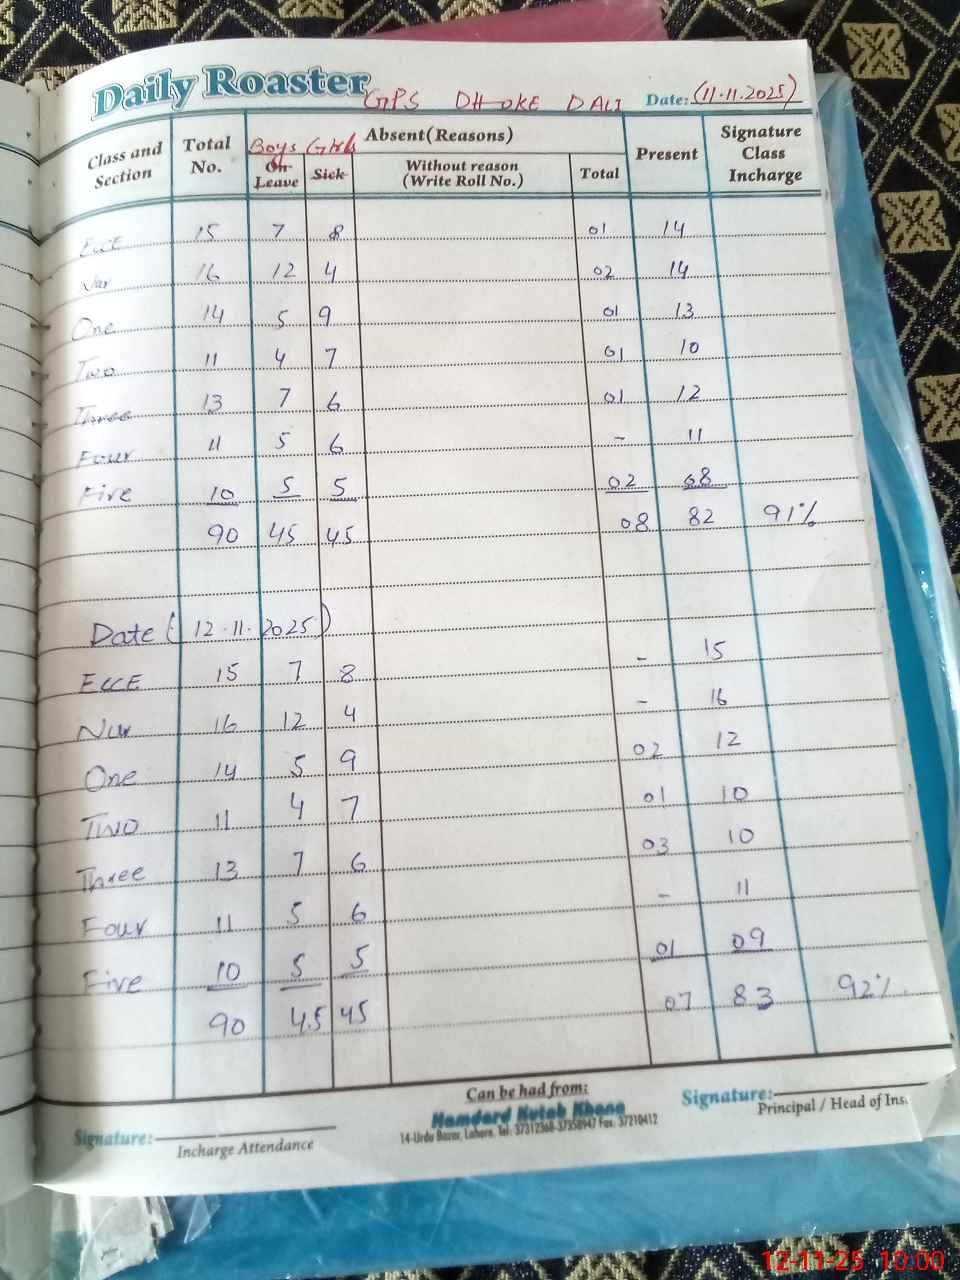 Daily Roaster GPS DHOKE DALI Date: (11.11.2025)
Class and Section Total No. Boys Girls Absent (Reasons) Present Signature Class Incharge
On Leave Sick Without reason (Write Roll No.) Total
ECCE 15 7 8 01 14
Nur 16 12 4 02 14
One 14 5 9 01 13
Two 11 4 7 01 10
Three 13 7 6 01 12
Four 11 5 6 - 11
Five 10 5 5 02 08
90 45 45 08 82 91%
Date (12.11.2025)
ECCE 15 7 8 - 15
Nur 16 12 4 - 16
One 14 5 9 02 12
Two 11 4 7 01 10
Three 13 7 6 03 10
Four 11 5 6 - 11
Five 10 5 5 01 09
90 45 45 07 83 92%
Can be had from:
Hamdard Kutab Khana
14-Urdu Bazar, Lahore. Tel: 37312368-37358947 Fax: 37210412
Signature: Incharge Attendance
Signature: Principal / Head of Ins.
12-11-25 10:00